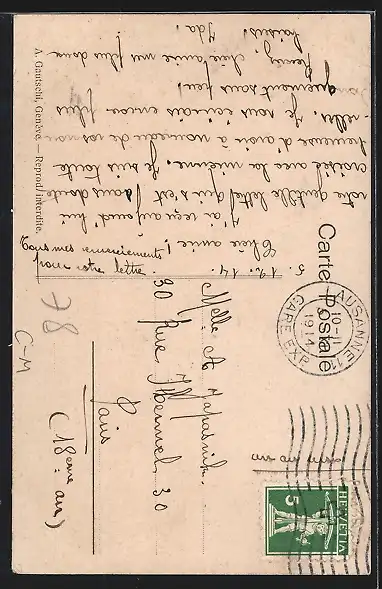 Carte Postale
A. Gautschi, Genève. — Reprod. interdite.
5. 12. 14
Chère amie
J'ai reçu aujourd'hui
votre gentille lettre qui s'est sans doute
croisée avec la mienne. Je suis toute
heureuse d'avoir à nouveau de vos nou-
velles. Je vous écrirais encore plus
longuement sous peu.
Recevez, chère amie mes plus doux
baisers.
Ida.
Tous mes remerciements
pour votre lettre.
Melle A.
30 Rue Hermel 30
Paris
(18ème arr)
78
C-M
LAUSANNE 1
10-11
1914
GARE EXP.
HELVETIA
5